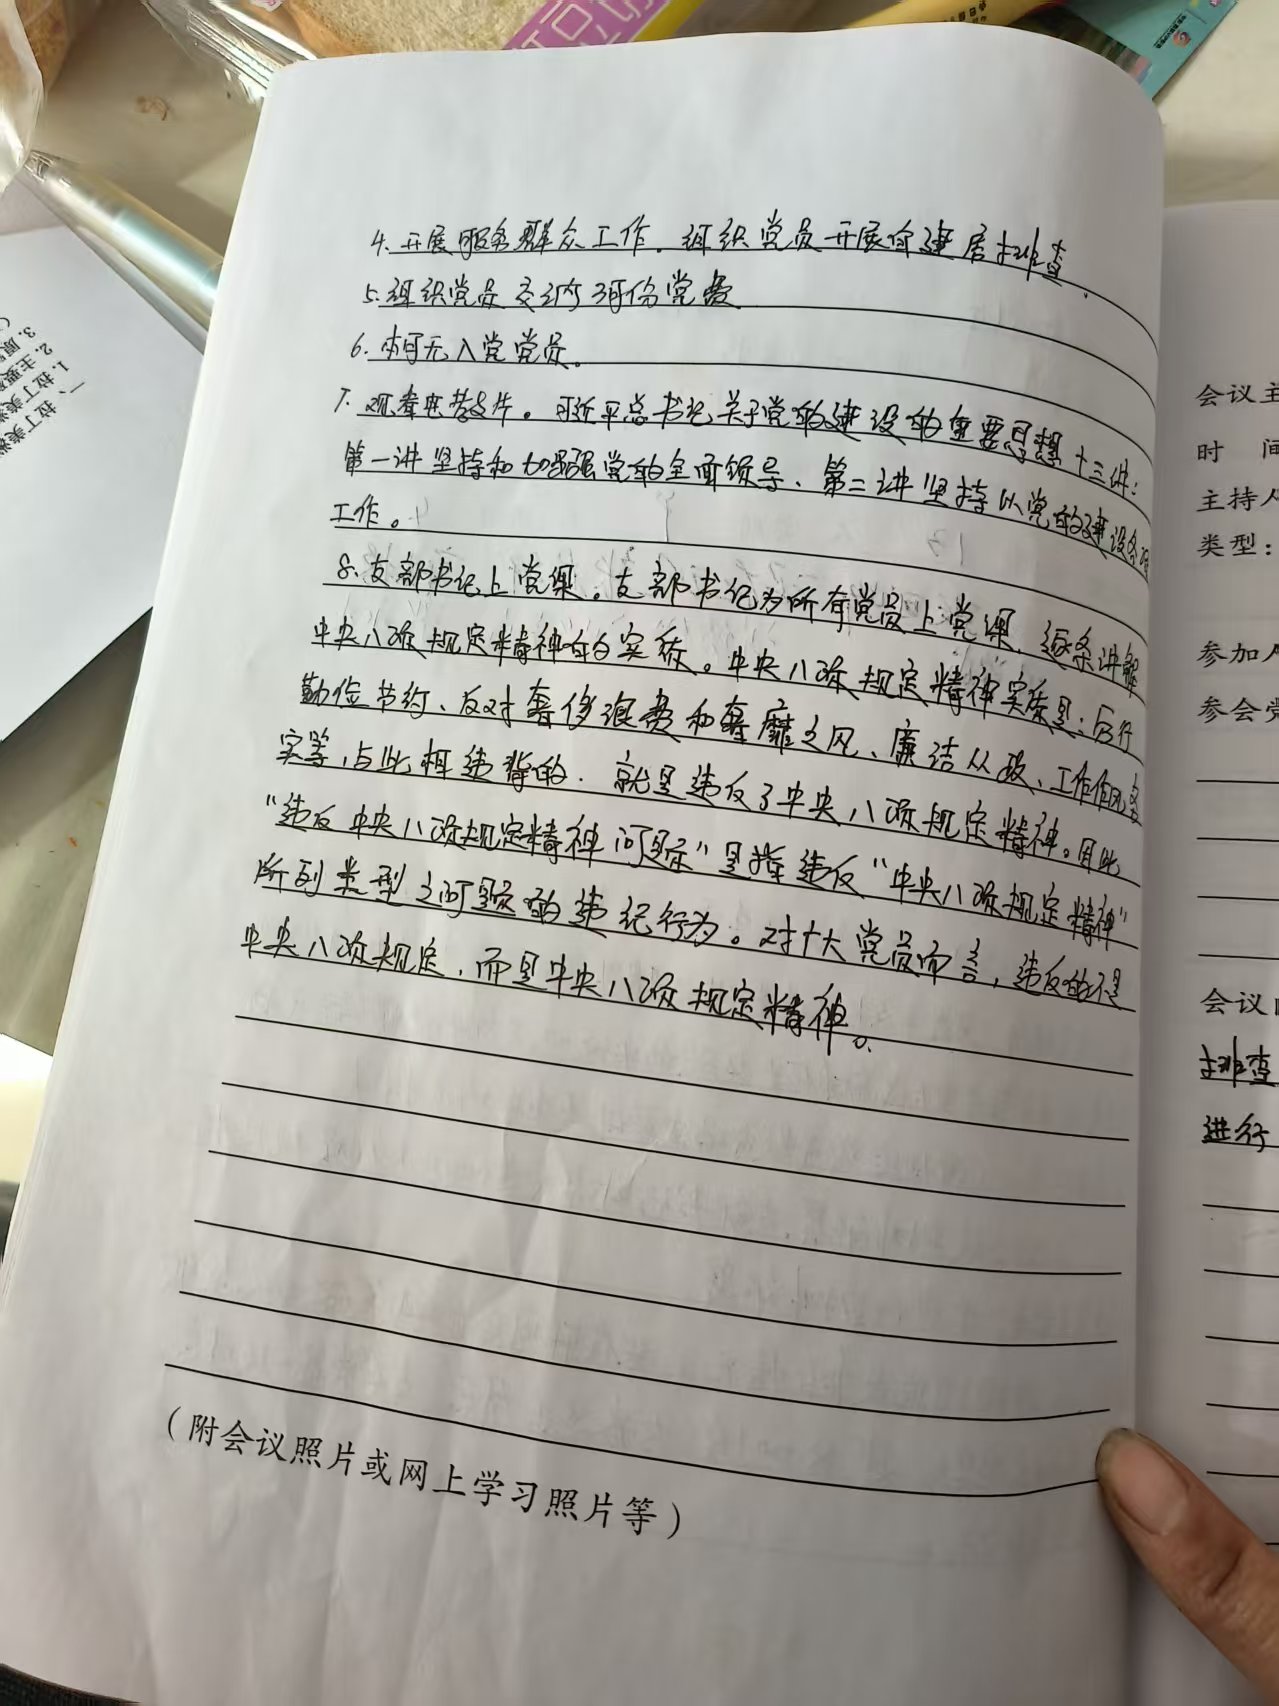 4. 开展服务群众工作. 组织党员开展自建房排查.
5. 组织党员交纳3月份党费
6. 本月无入党党员。
7. 观看电教片。习近平总书记关于党的建设的重要思想十三讲:
第一讲坚持和加强党的全面领导、第二讲坚持以党的建设各项
工作。
8. 支部书记上党课。支部书记为所有党员上党课, 逐条讲解
中央八项规定精神的实质。中央八项规定精神实质是: 厉行
勤俭节约、反对奢侈浪费和奢靡之风、廉洁从政、工作作风务
实等, 与此相违背的. 就是违反了中央八项规定精神。因此
“违反中央八项规定精神问题”是指违反“中央八项规定精神”
所列类型之问题的违纪行为。对十大党员而言, 违反的不是
中央八项规定, 而是中央八项规定精神。
(附会议照片或网上学习照片等)
会议主
时 间
主持人
类型:
参加人
参会党
会议
排查
进行
一、拉丁美
1. 拉丁美
2. 主要
3. 原